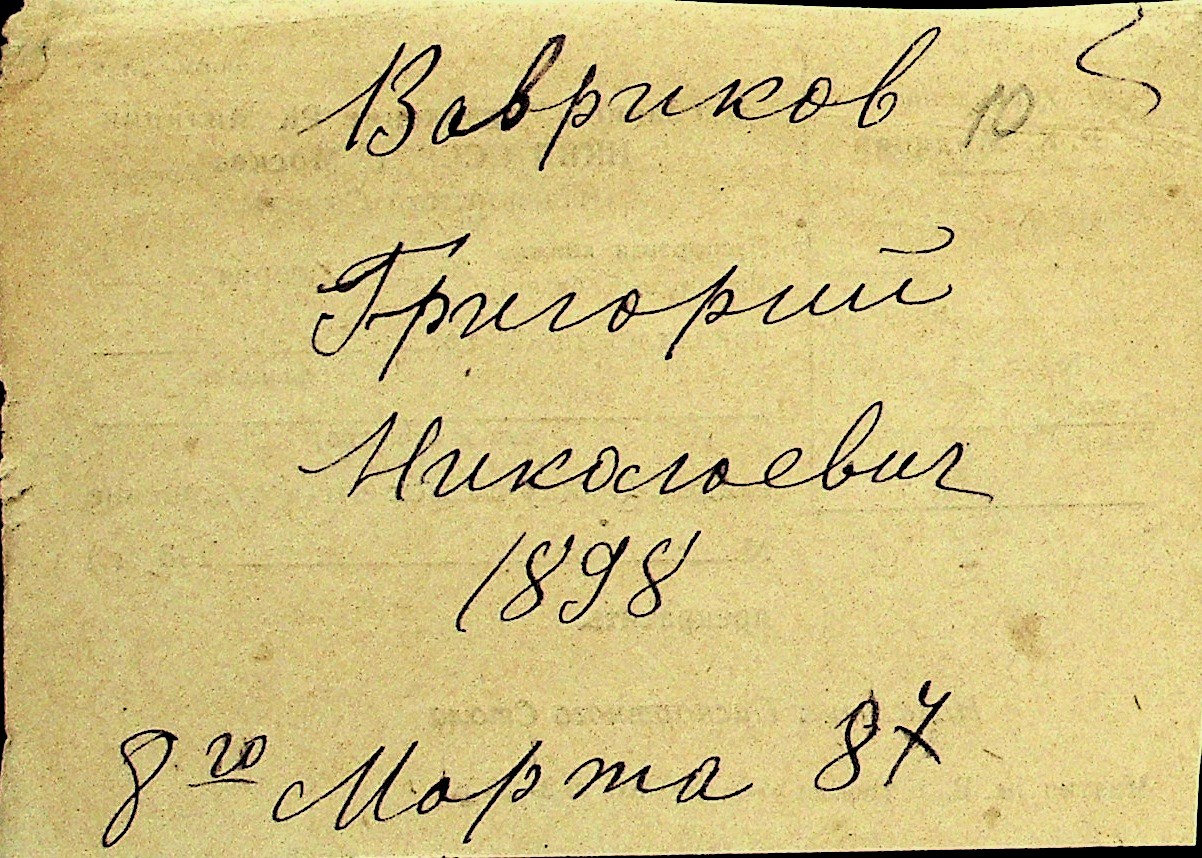 Вавриков 10
Григорий
Николаевич
1898
8го Марта 87